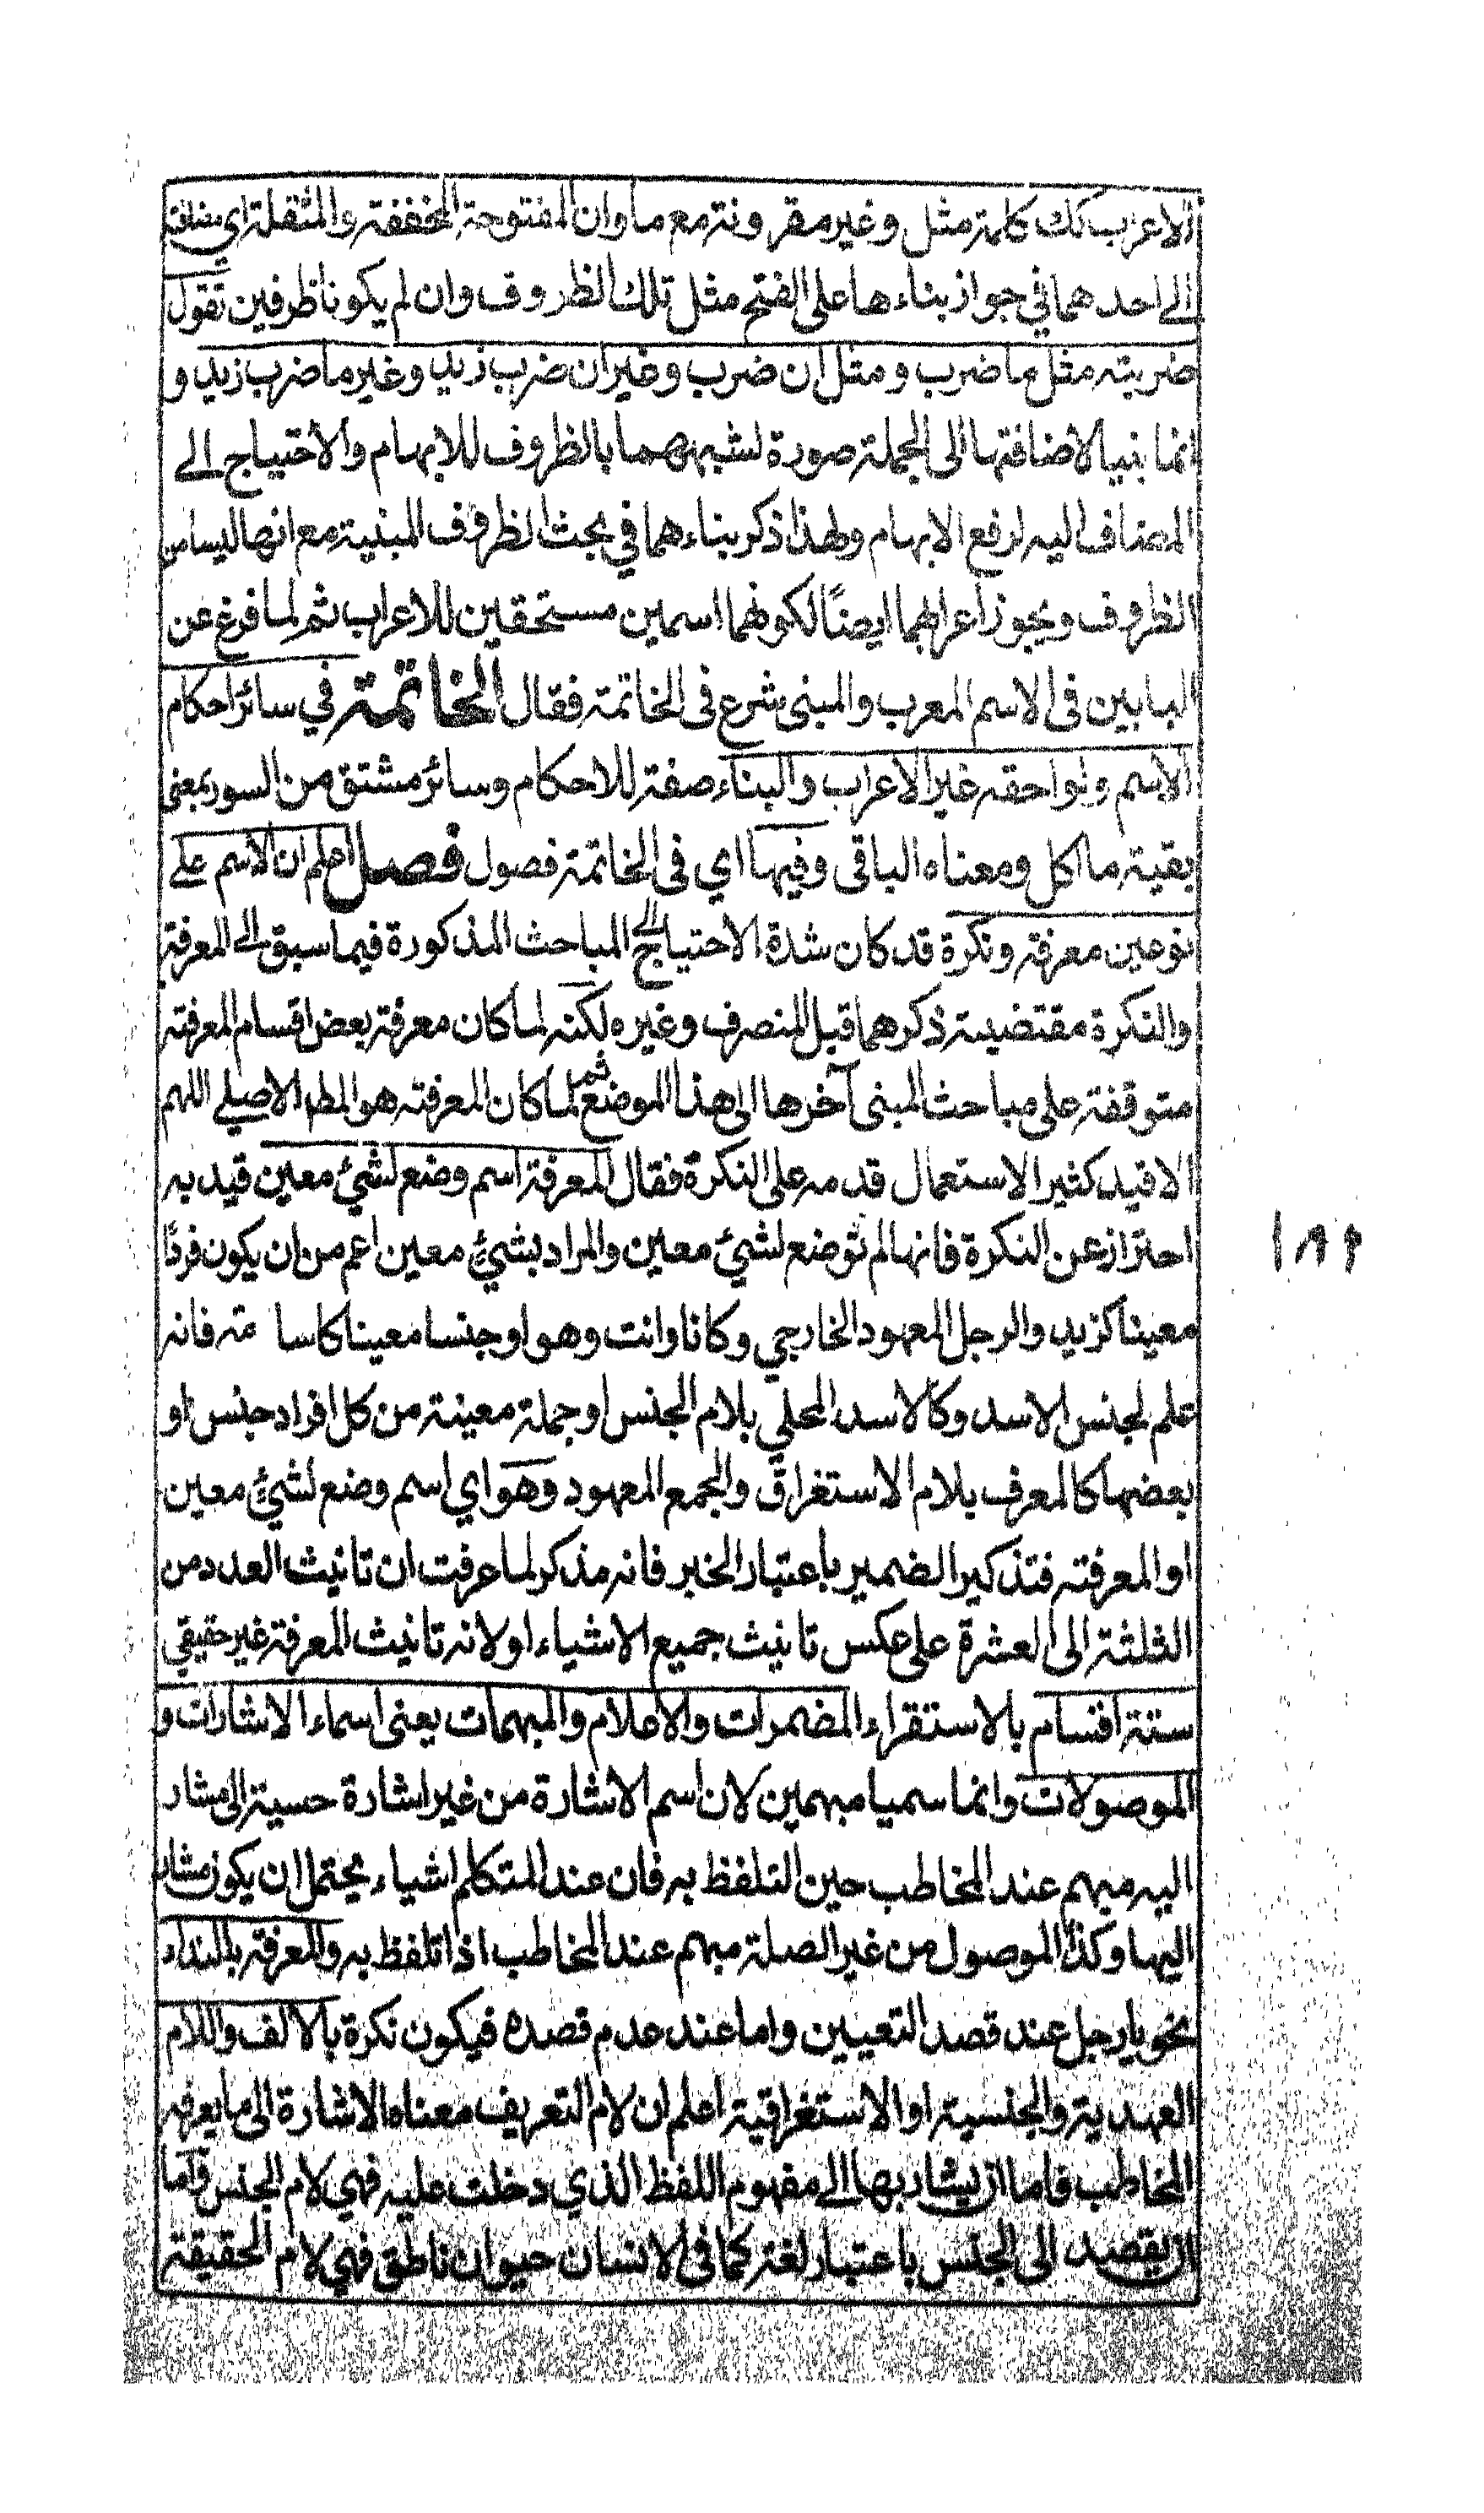 الاعراب كك كلمة مثل وغير مقرونة مع ما وان المفتوحة المخففة والمثقلة اي مضافة
الے احدهما في جواز بناءها على الفتح مثل تلك الظروف وان لم يكونا ظرفين تقول
ضربته مثل ما ضرب ومثل ان ضرب وغير ان ضرب زيد وغير ما ضرب زيد و
انما بنيا لاضافتها الى الجملة صورة لشبههما بالظروف للابهام والاحتياج الے
المضاف اليه لرفع الابهام ولهذا ذكر بناءهما في بحث الظروف المبنية مع انهما ليسا من
الظروف ويجوز اعرابهما ايضًا لكونهما اسمين مستحقين للاعراب ثم لما فرغ عن
البابين فى الاسم المعرب والمبنى شرع فى الخاتمة فقال الخاتمة في سائر احكام
الاسم ولواحقه غير الاعراب والبناء صفة للاحكام وسائر مشتق من السور بمعنى
بقية ما اكل ومعناه الباقى وفيها اي فى الخاتمة فصول فصل اعلم ان الاسم علے
نوعين معرفة ونكرة قد كان شدة الاحتياج الے المباحث المذكورة فيما سبق الے المعرفة
والنكرة مقتضية ذكرهما قبل المنصرف وغيره لكنه لما كان معرفة بعض اقسام المعرفة
متوقفة على مباحث المبنى آخرها الى هذا الموضع ثم لما كان المعرفة هو المطلب الاصلے اللهم
الا قيد كثير الاستعمال قدمه على النكرة فقال المعرفة اسم وضع لشئ معين قيد به
احتراز عن النكرة فانها لم توضع لشئ معين والمراد بشئ معين اعم من ان يكون فردًا
معينا كزيد والرجل المعهود الخارجي وكانا وانت وهو او جنسا معينا كاسا مة فانه
علم لجنس الاسد وكالاسد المحلي بلام الجنس او جملة معينة من كل افراد جنس او
بعضها كالمعرف بلام الاستغراق والجمع المعهود وهو اي اسم وضع لشئ معين
او المعرفة فتذكير الضمير باعتبار الخبر فانه مذكر لما عرفت ان تانيث العدد من
الثلثة الى العشرة على عكس تانيث جميع الاشياء او لانه تانيث المعرفة غير حقيقي
ستة اقسام بالاستقراء المضمرات والاعلام والمبهمات يعنى اسماء الاشارات و
الموصولات وانما سميا مبهمين لان اسم الاشارة من غير اشارة حسية الى مشار
اليه مبهم عند المخاطب حين التلفظ به فان عند المتكلم اشياء يحتمل ان يكون مشار
اليها وكذا الموصول من غير الصلة مبهم عند المخاطب اذا تلفظ به والمعرفة بالنداء
نحو يا رجل عند قصد التعيين واما عند عدم قصده فيكون نكرة بالالف واللام
العهدية والجنسية او الاستغراقية اعلم ان لام التعريف معناه الاشارة الى ما يعرفه
المخاطب فاما ان يشار بها الے مفهوم اللفظ الذي دخلت عليه فهي لام الجنس فاما
ان يقصد الى الجنس باعتبار لغة كما فى الانسان حيوان ناطق فهي لام الحقيقة
١٨٢